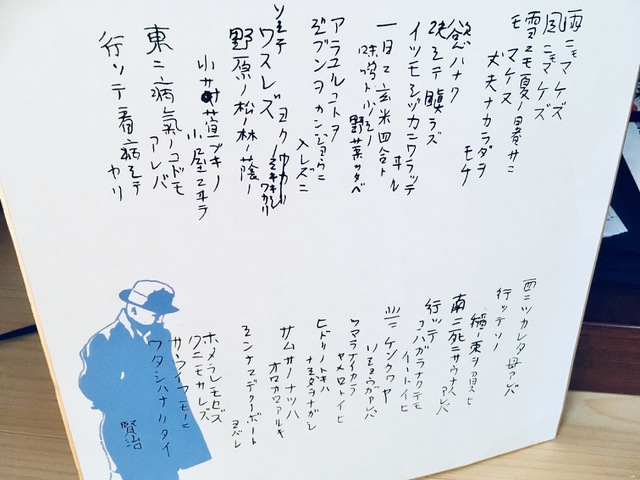 雨ニモマケズ
風ニモマケズ
雪ニモ夏ノ暑サニ
モ マケヌ
丈夫ナカラダヲ
モチ
慾ハナク
決シテ瞋ラズ
イツモシヅカニワラッテ
ヰル
一日ニ玄米四合ト
味噌ト少シノ
野菜ヲタベ
アラユルコトヲ
ジブンヲカンジョウニ
入レズニ
ヨクミキキシワカリ
ソシテ
ワスレズ
野原ノ松ノ林ノ蔭ノ
小サナ萓ブキノ
小屋ニヰテ
東ニ病氣ノコドモ
アレバ
行ッテ看病シテ
ヤリ
西ニツカレタ母アレバ
行ッテソノ
稲ノ束ヲ負ヒ
南ニ死ニサウナ人
アレバ
行ッテ
コハガラナクテモ
イヽトイヒ
北ニケンクヮヤ
ソショウガアレバ
ツマラナイカラ
ヤメロトイヒ
ヒドリノトキハ
ナミダヲナガシ
サムサノナツハ
オロオロアルキ
ミンナニデクノボート
ヨバレ
ホメラレモセズ
クニモサレズ
サウイフモノニ
ワタシハナリタイ
賢治